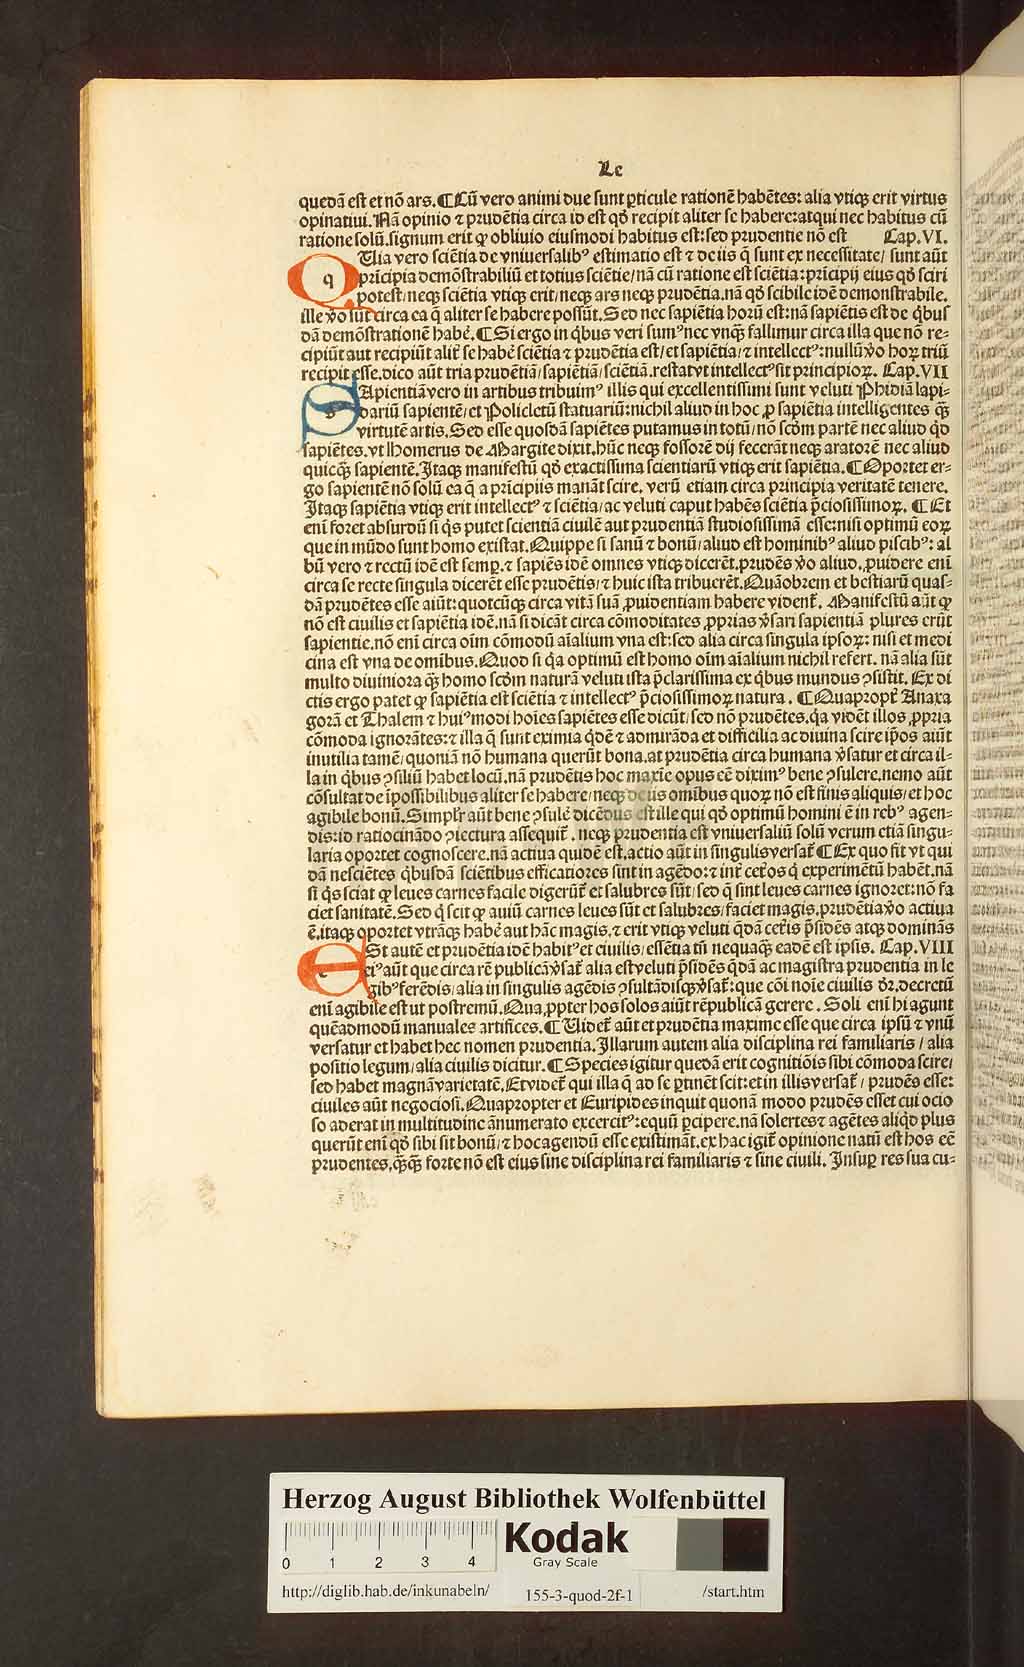 Le
quedā est et nō ars. ¶ Cū vero animi due sunt ꝑticule rationē habētes: alia vtiqꝫ erit virtus
opinatiui. Nā opinio ⁊ prudētia circa id est qđ recipit aliter se habere: atqui nec habitus cū
ratione solū. signum erit ꝙ obliuio eiusmodi habitus est: sed prudentie nō est Cap. VI.
q Uia vero sciētia de vniuersalibꝰ estimatio est ⁊ de iis q̄ sunt ex necessitate/ sunt aūt
prīcipia demōstrabiliū et totius sciētie/ nā cū ratione est sciētia: prīcipij eius qđ sciri
potest/ neqꝫ sciētia vtiqꝫ erit/ neqꝫ ars neqꝫ prudētia. nā qđ scibile idē demonstrabile.
ille v̄o sūt circa ea q̄ aliter se habere possūt. Sed nec sapiētia horū est: nā sapiētis est de q̇bus
dā demōstrationē habē. ¶ Si ergo in q̇bus veri sumꝰ nec vnqꝫ fallimur circa illa que nō re⸗
cipiūt aut recipiūt alit̄ se habē sciētia ⁊ prudētia est/ et sapiētia/ ⁊ intellectꝰ: nullū v̄o hoꝝ triū
recipit esse. dico aūt tria prudētiā/ sapiētiā/ sciētiā. restat vt intellectꝰ sit principioꝝ. Cap. VII
S Apientiā vero in artibus tribuimꝰ illis qui excellentissimi sunt veluti Phidiā lapi⸗
dariū sapientē/ et Policletū statuariū: nichil aliud in hoc ꝓ sapiētia intelligentes qꝫ
virtutē artis. Sed esse quosdā sapiētes putamus in totū/ nō scđm partē nec aliud qđ
sapiētes. vt Homerus de Margite dixit. hūc neqꝫ fossorē dij fecerāt neqꝫ aratorē nec aliud
quicqꝫ sapientē. Itaqꝫ manifestū qđ exactissima scientiarū vtiqꝫ erit sapiētia. ¶ Oportet er⸗
go sapientē nō solū ea q̄ a prīcipiis manāt scire. verū etiam circa principia veritatē tenere.
Itaqꝫ sapiētia vtiqꝫ erit intellectꝰ ⁊ sciētia/ ac veluti caput habēs sciētia p̄ciosissimoꝝ. ¶ Et
eni foret absurdū si q̇s putet scientiā ciuilē aut prudentiā studiosissimā esse: nisi optimū eoꝝ
que in mūdo sunt homo existat. Quippe si sanū ⁊ bonū/ aliud est hominibꝰ aliud piscibꝰ: al
bū vero ⁊ rectū idē est semꝑ. ⁊ sapiēs idē omnes vtiqꝫ dicerēt. prudēs v̄o aliud. ꝓuidere enī
circa se recte singula dicerēt esse prudētis/ ⁊ huic ista tribuerēt. Quāobrem et bestiarū quas⸗
dā prudētes esse aiūt: quotcūqꝫ circa vitā suā ꝓuidentiam habere vident̄. Manifestū aūt ꝙ
nō est ciuilis et sapiētia idē. nā si dicāt circa cōmoditates ꝓprias v̄sari sapientiā plures erūt
sapientie. nō enī circa oīm cōmodū aīalium vna est: sed alia circa singula ipsoꝝ: nisi et medi
cina est vna de omībus. Quod si q̇a optimū est homo oīm aīalium nichil refert. nā alia sūt
multo diuiniora qꝫ homo scđm naturā veluti ista p̄clarissima ex q̇bus mundus ꝯsistit. Ex di
ctis ergo patet ꝙ sapiētia est sciētia ⁊ intellectꝰ p̄ciosissimoꝝ natura. ¶ Quapropt̄ Anaxa
gorā et Thalem ⁊ huiꝰmodi hoīes sapiētes esse dicūt/ sed nō prudētes. q̇a vidēt illos ꝓpria
cōmoda ignorātes: ⁊ illa q̄ sunt eximia q̇dē ⁊ admirāda et difficilia ac diuina scire ip̄os aiūt
inutilia tamē/ quoniā nō humana querūt bona. at prudētia circa humana v̄satur et circa il⸗
la in q̇bus ꝯsiliū habet locū. nā prudētis hoc maxīe opus eē diximꝰ bene ꝯsulere. nemo aūt
cōsultat de īpossibilibus aliter se habere/ neqꝫ de iis omībus quoꝝ nō est finis aliquis/ et hoc
agibile bonū. Simplr̄ aūt bene ꝯsulē dicēdus est ille qui qđ optimū homini ē in rebꝰ agen⸗
dis: id ratiocinādo ꝯiectura assequit̄. neqꝫ prudentia est vniuersaliū solū verum etiā singu⸗
laria oportet cognoscere. nā actiua quidē est. actio aūt in singulis versat̄ ¶ Ex quo fit vt qui
dā nesciētes q̇busdā sciētibus efficatiores sint in agēdo: ⁊ int̄ cet̄os q̇ experimētū habēt. nā
si q̇s sciat ꝙ leues carnes facile digerūt̄ et salubres sūt/ sed q̄ sint leues carnes ignoret: nō fa
ciet sanitatē. Sed q̇ scit ꝙ auiū carnes leues sūt et salubres/ faciet magis. prudētia v̄o actiua
ē. itaqꝫ oportet vtrāqꝫ habē aut hāc magis. ⁊ erit vtiqꝫ veluti q̄dā cet̄is p̄sidēs atqꝫ dominās
e St autē et prudētia idē habitꝰ et ciuilis/ essētia tn̄ nequaqꝫ eadē est ipsis. Cap. VIII
eiꝰ aūt que circa rē publicā v̄sat̄ alia est veluti p̄sidēs q̄dā ac magistra prudentia in le
gibꝰ ferēdis/ alia in singulis agēdis ꝯsultādisqꝫ v̄sat̄: que cōi noīe ciuilis dr̄. decretū
enī agibile est ut postremū. Quaꝓpter hos solos aiūt rēpublicā gerere. Soli enī hi agunt
quēadmodū manuales artifices. ¶ Uidet̄ aūt et prudētia maxime esse que circa ipsū ⁊ vnū
versatur et habet hec nomen prudentia. Illarum autem alia disciplina rei familiaris/ alia
positio legum/ alia ciuilis dicitur. ¶ Species igitur quedā erit cognitiōis sibi cōmoda scire/
sed habet magnā varietatē. Et videt̄ qui illa q̄ ad se ꝑtinēt scit: et in illis versat̄/ prudēs esse:
ciuiles aūt negociosi. Quapropter et Euripides inquit quonā modo prudēs esset cui ocio
so aderat in multitudine ānumerato excercitꝰ: equū ꝑcipere. nā solertes ⁊ agētes aliq̇d plus
querūt enī qđ sibi sit bonū/ ⁊ hoc agendū esse existimāt. ex hac igit̄ opinione natū est hos eē
prudentes. qꝫqꝫ forte nō est eius sine disciplina rei familiaris ⁊ sine ciuili. Insuꝑ res sua cu⸗
Herzog August Bibliothek Wolfenbüttel
0 1 2 3 4
Kodak
Gray Scale
http://diglib.hab.de/inkunabeln/ 155-3-quod-2f-1 /start.htm